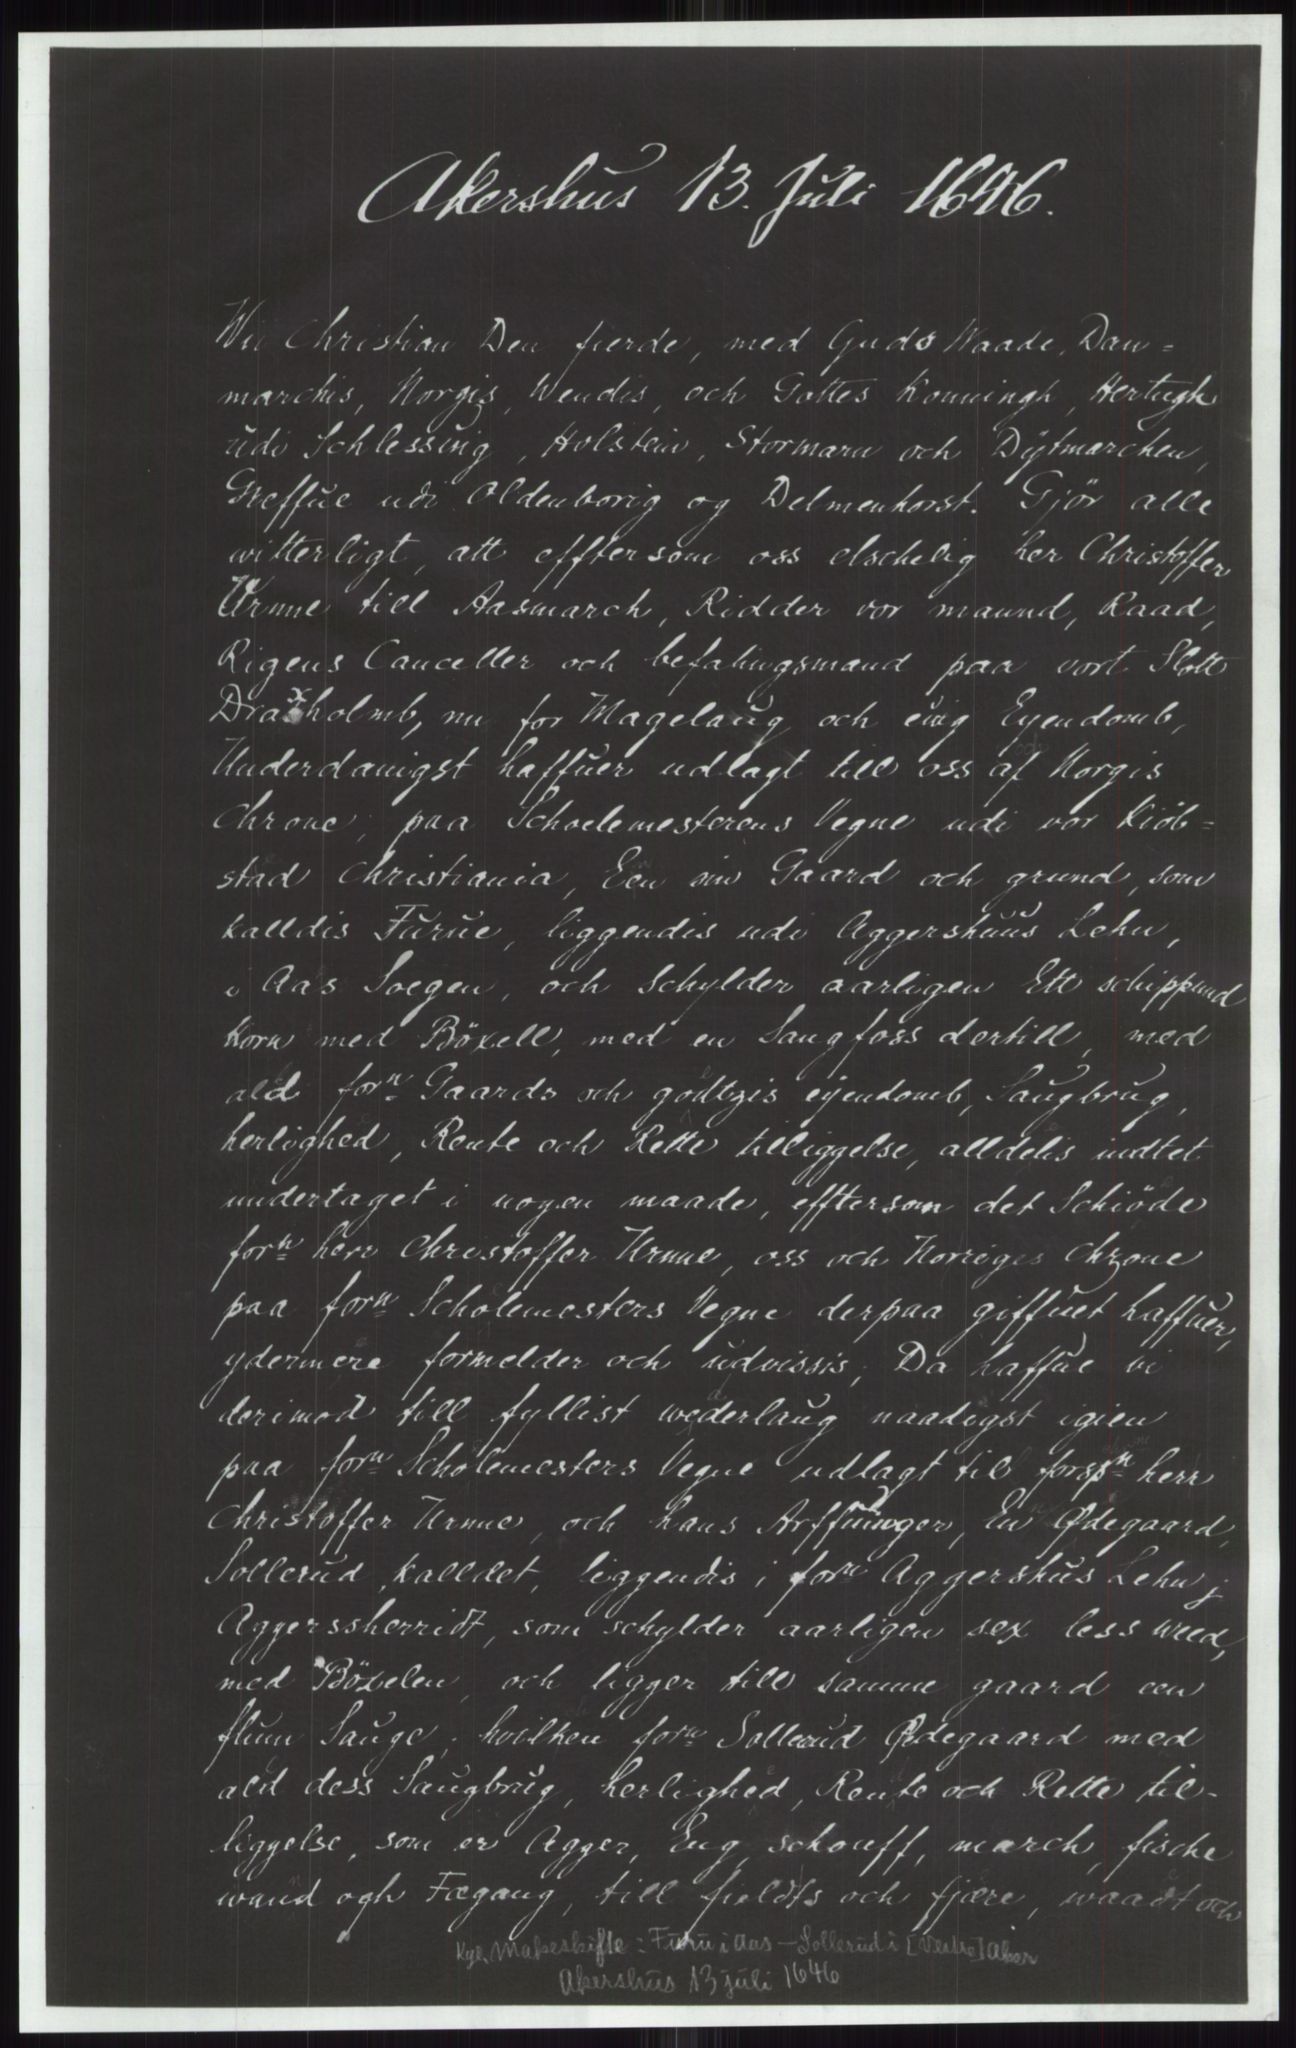 Akershus 13. Juli 1646.
Wii Christian Den fierde, med Guds Naade, Dan-
marchis, Norgis, Wendis, och Gottes Konningh, Hertugh
udi Schlessuig, Holstein, Stormarn och Dÿtmarchen,
Greffue udi Oldenborig og Delmenhorst. Gjör alle
witterligt, att efftersom oss elschelig her Christoffer
Urnne till Aasmarch, Ridder vor maund, Raad,
Rigens Canceller och befalingsmand paa vort Slott
Draxholmb, nu for Magelaug och evig Eyendomb,
Underdanigst haffuer udlagt till oss af Norgis
Chrone, paa Schoelemesterens Vegne udi vor Kiöb-
stad Christiania, Een sin Gaard och grund, som
kalldis Furue, liggendis udi Aggershuus Lehn,
i Aas Soegen, och schylder aarligen Ett schippund
Korn med Böxell, med en Saugfoss dertill, med
ald forn Gaards och godtzis eyendomb, Saugbrug,
herlighed, Rente och Rette tilliggelse, alldelis indtet
undertaget i nogen maade, efftersom det Schiöde
forn herr Christoffer Urnne, oss och Norriges Chrone
paa forn Scholemesters Vegne derpaa giffuet haffuer,
ydermere formelder och udvissis; Da haffue vi
derimod till fyllist wederlaug naadigst igien
paa forn Scholemesters Vegne udlagt til forspn herr
Christoffer Urnne, och hans Arffuinger, En Ødegaard,
Sollerud, kalldet, liggendis i forn Aggershus Lehn j
Aggerssherridt, som schylder aarligen sex less weed,
med Böxelen, och ligger till samme gaard een
flum Sauge, hvilken forn Sollerud Ødegaard med
ald dess Saugbrug, herlighed, Rente och Rette til-
liggelse, som er Agger, Eng, schouff, march, fische
wand ogh Fægang, till fieldts och fjære, waadt och
Kgl. Makeskifte: Furu i Aas - Sollerud i [Vestre] Aker
Akershus 13 juli 1646